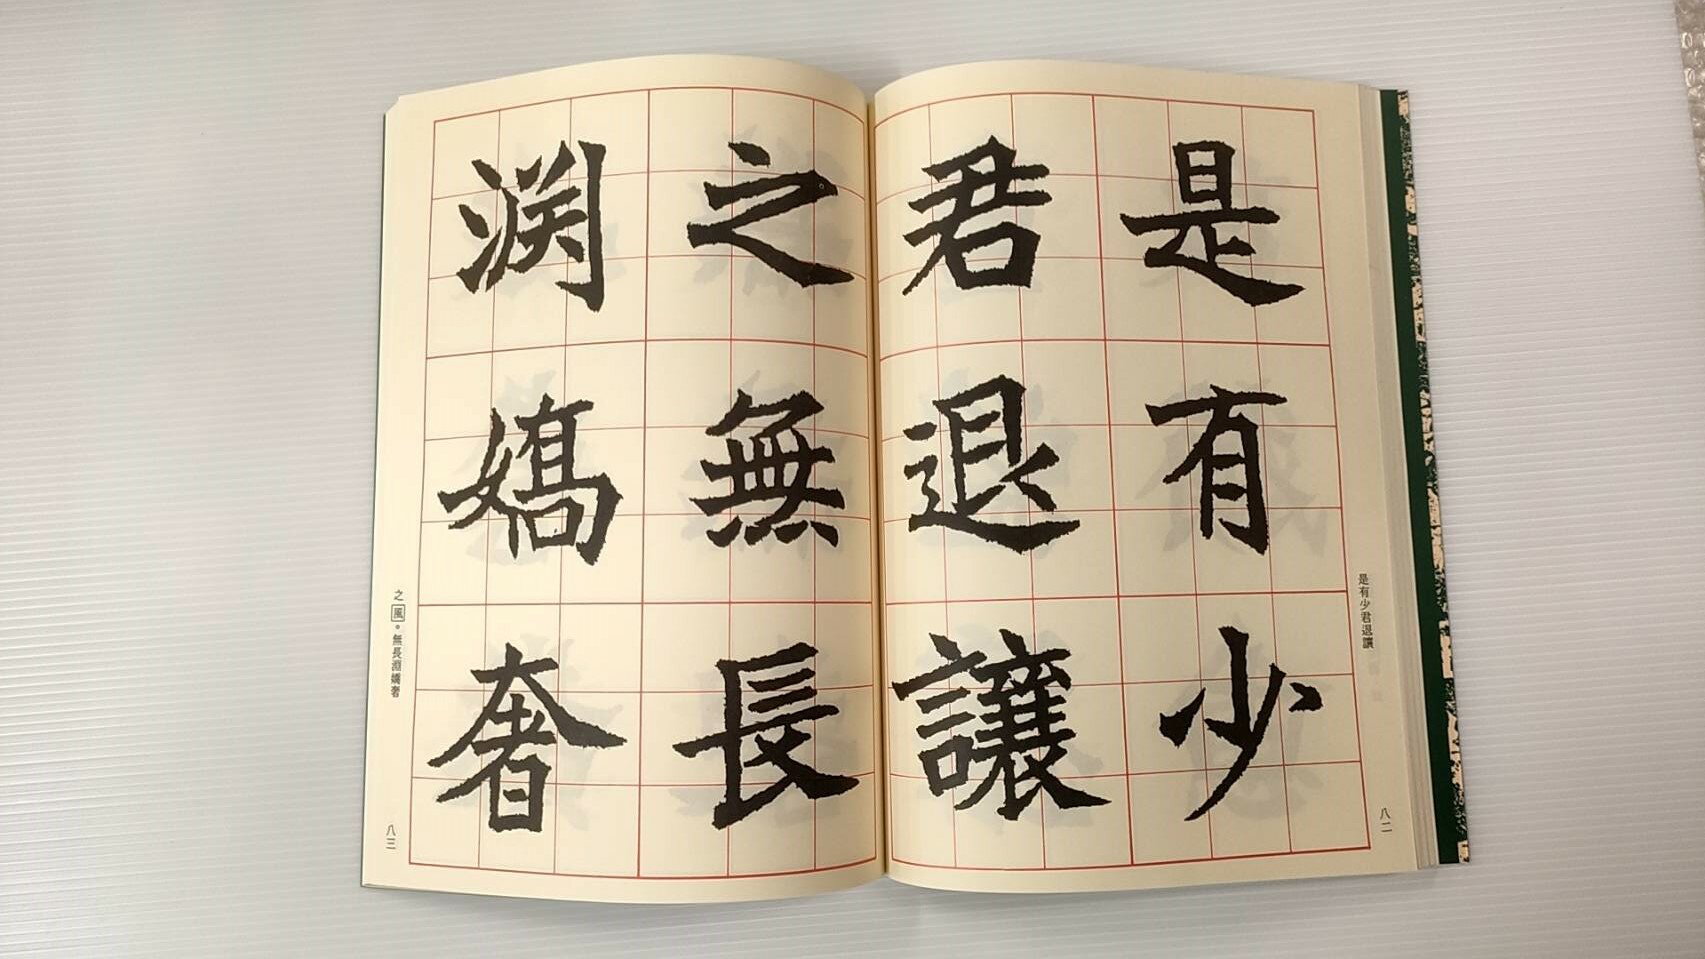 是有少
君退讓
是有少君退讓
八二
之無長
渕嬌奢
之風。無長淵嬌奢
八三